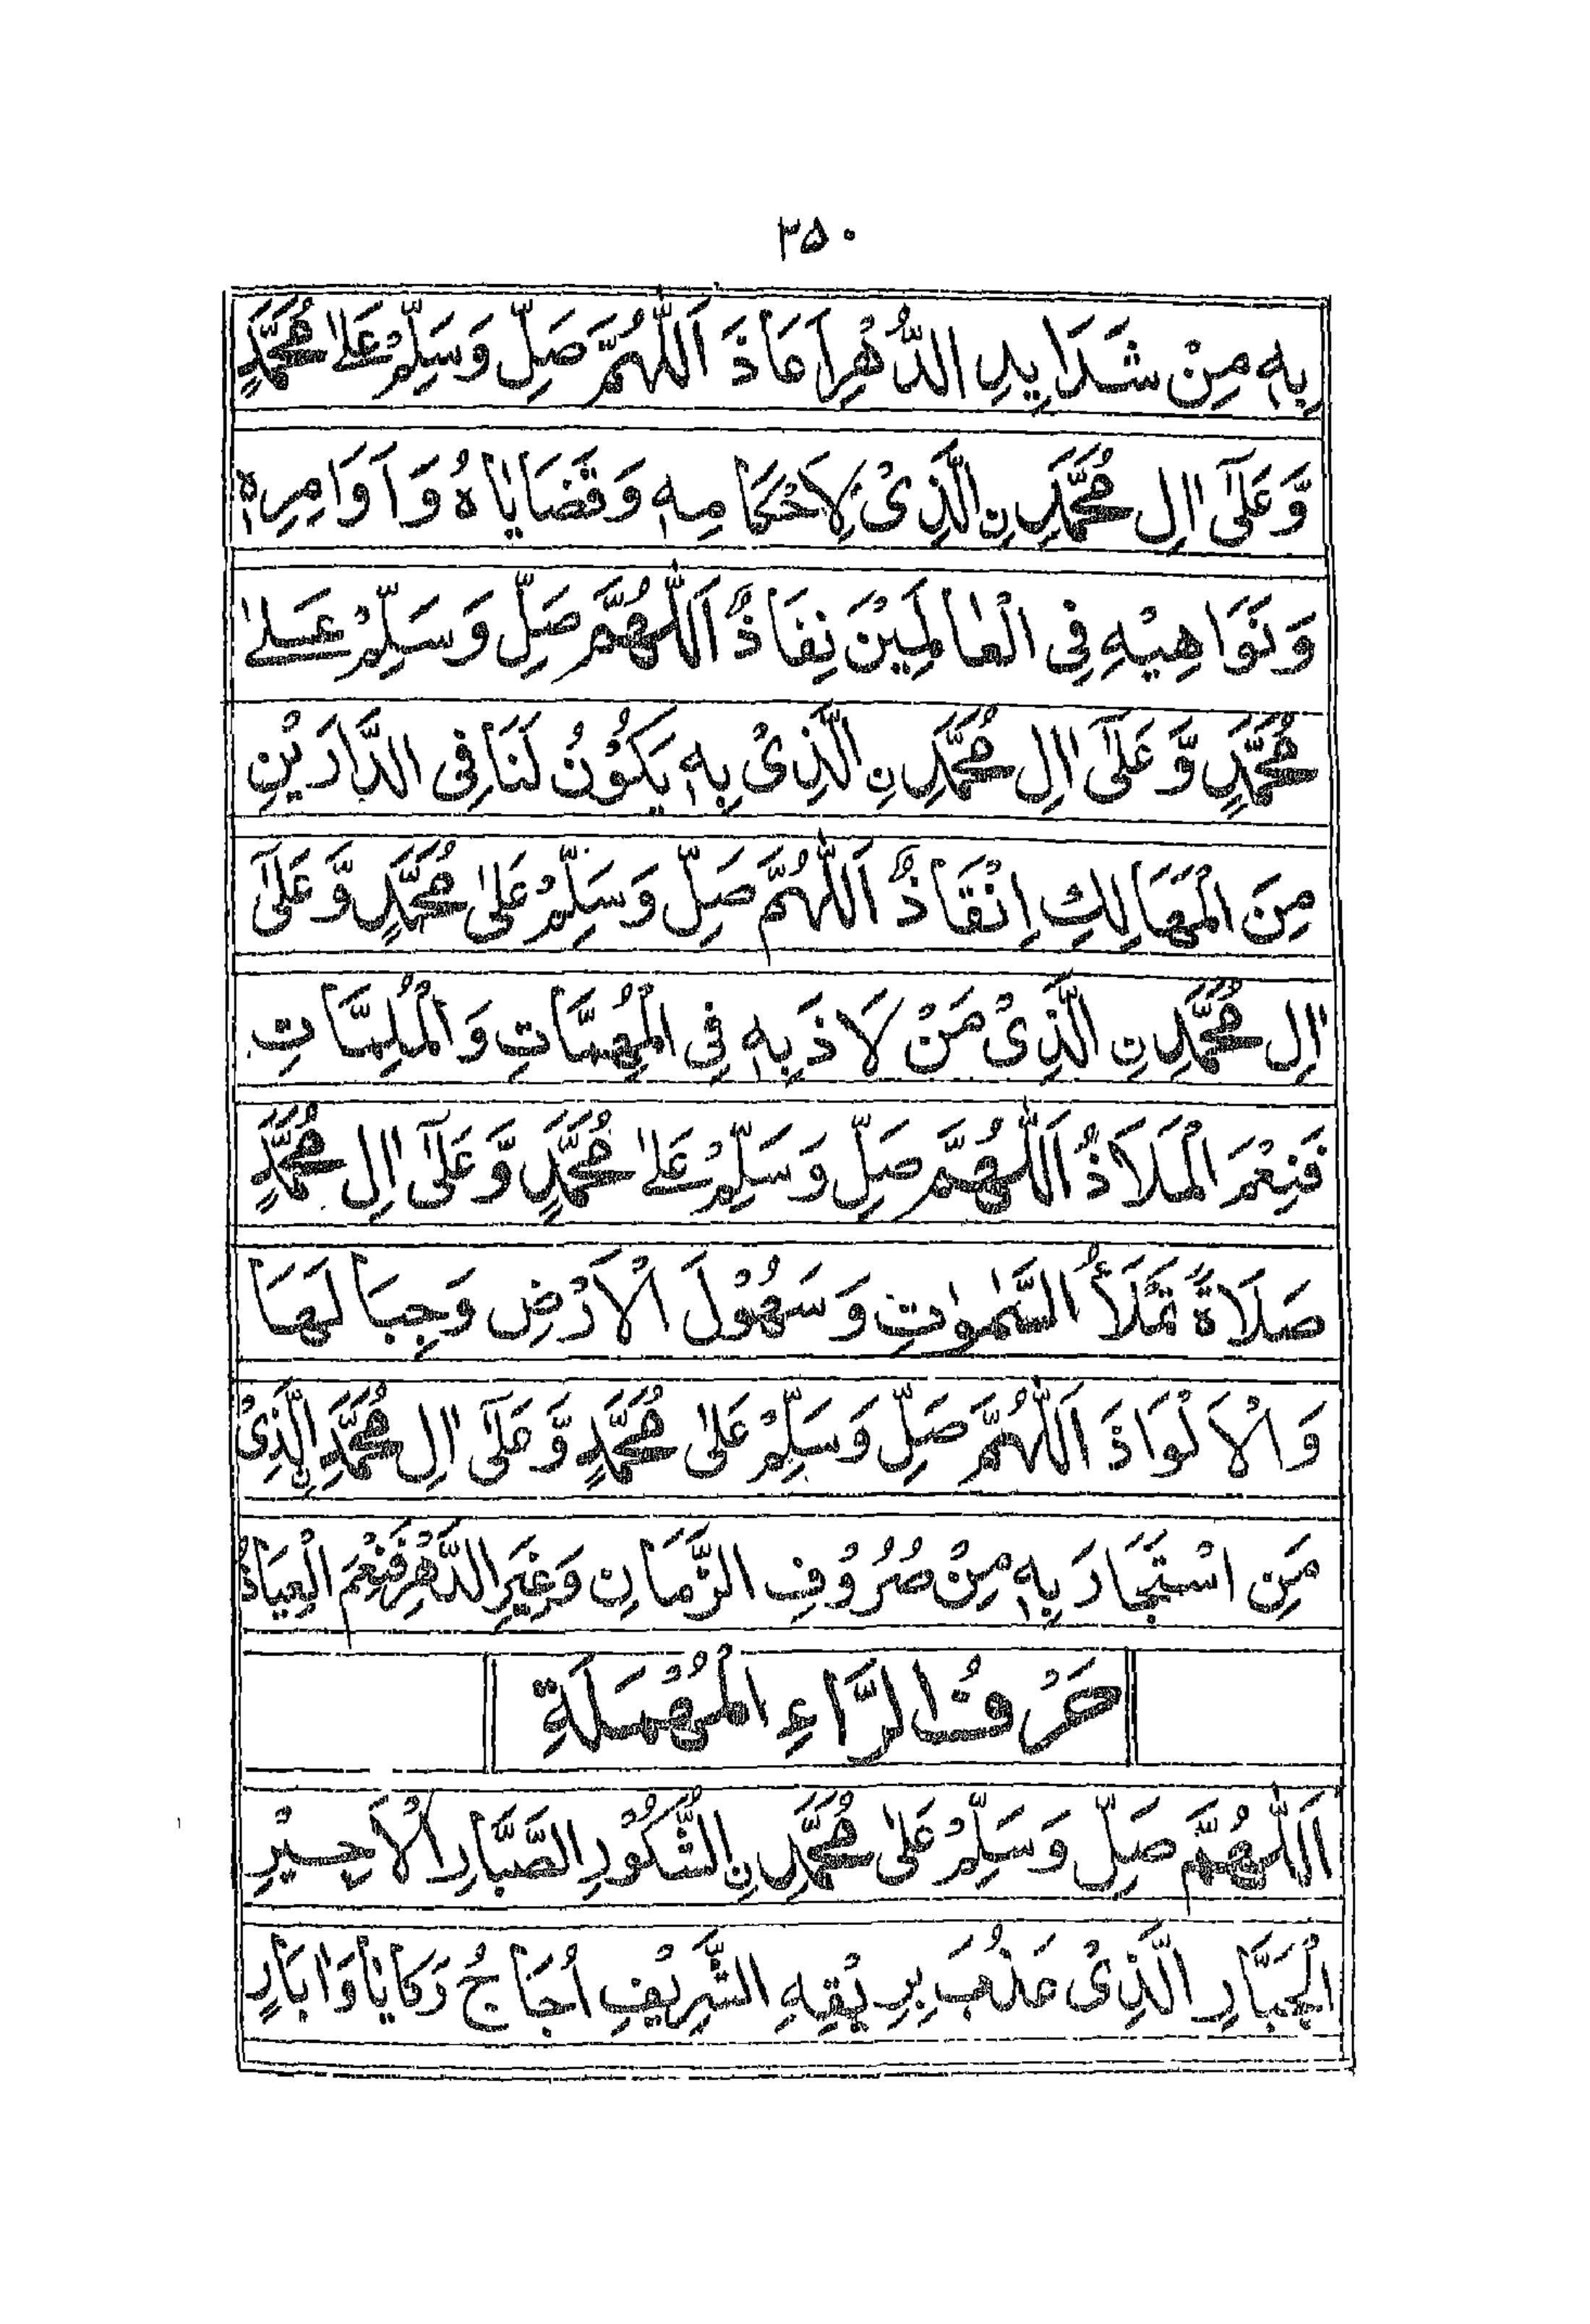 ۳۵۰
بِهٖ مِنْ شَدَايِدِ الدَّهْرِ اَعَاذَ اَللّٰهُمَّ صَلِّ وَسَلِّمْ عَلٰى مُحَمَّدٍ
وَّعَلٰٓى اٰلِ مُحَمَّدِ نِ الَّذِىْ لِاَحْكَامِهٖ وَقَضَايَاهُ وَاَوَامِرِهٖ
وَنَوَاهِيْهِ فِى الْعَالَمِيْنَ نِفَاذٌ اَللّٰهُمَّ صَلِّ وَسَلِّمْ عَلٰى
مُحَمَّدٍ وَّعَلٰٓى اٰلِ مُحَمَّدِ نِ الَّذِىْ بِهٖ يَكُوْنُ لَنَا فِى الدَّارَيْنِ
مِنَ الْمَهَالِكِ اِنْقَاذٌ اَللّٰهُمَّ صَلِّ وَسَلِّمْ عَلٰى مُحَمَّدٍ وَّعَلٰٓى
اٰلِ مُحَمَّدِ نِ الَّذِىْ مَنْ لَاذَ بِهٖ فِى الْمُهِمَّاتِ وَالْمُلِمَّاتِ
فَنِعْمَ الْمَلَاذُ اَللّٰهُمَّ صَلِّ وَسَلِّمْ عَلٰى مُحَمَّدٍ وَّعَلٰٓى اٰلِ مُحَمَّدٍ
صَلَاةً تَمْلَأُ السَّمٰوٰتِ وَسَهُوْلَ الْاَرْضِ وَجِبَالَهَا
وَالْاَلْوَاذَ اَللّٰهُمَّ صَلِّ وَسَلِّمْ عَلٰى مُحَمَّدٍ وَّعَلٰٓى اٰلِ مُحَمَّدِ نِ الَّذِىْ
مَنِ اسْتَجَارَ بِهٖ مِنْ صُرُوْفِ الزَّمَانِ وَغِيَرِ الدَّهْرِ فَنِعْمَ الْعِيَاذُ
حَرْفُ الرَّاءِ الْمُهْمَلَةِ
اَللّٰهُمَّ صَلِّ وَسَلِّمْ عَلٰى مُحَمَّدِ نِ الشَّكُوْرِ الصَّبَّارِ الْاَجِيْرِ
الْجَبَّارِ الَّذِىْ عَذُبَ بِرِيْقِهِ الشَّرِيْفِ اُجَاجُ رَكَايَا وَاٰبَارٍ